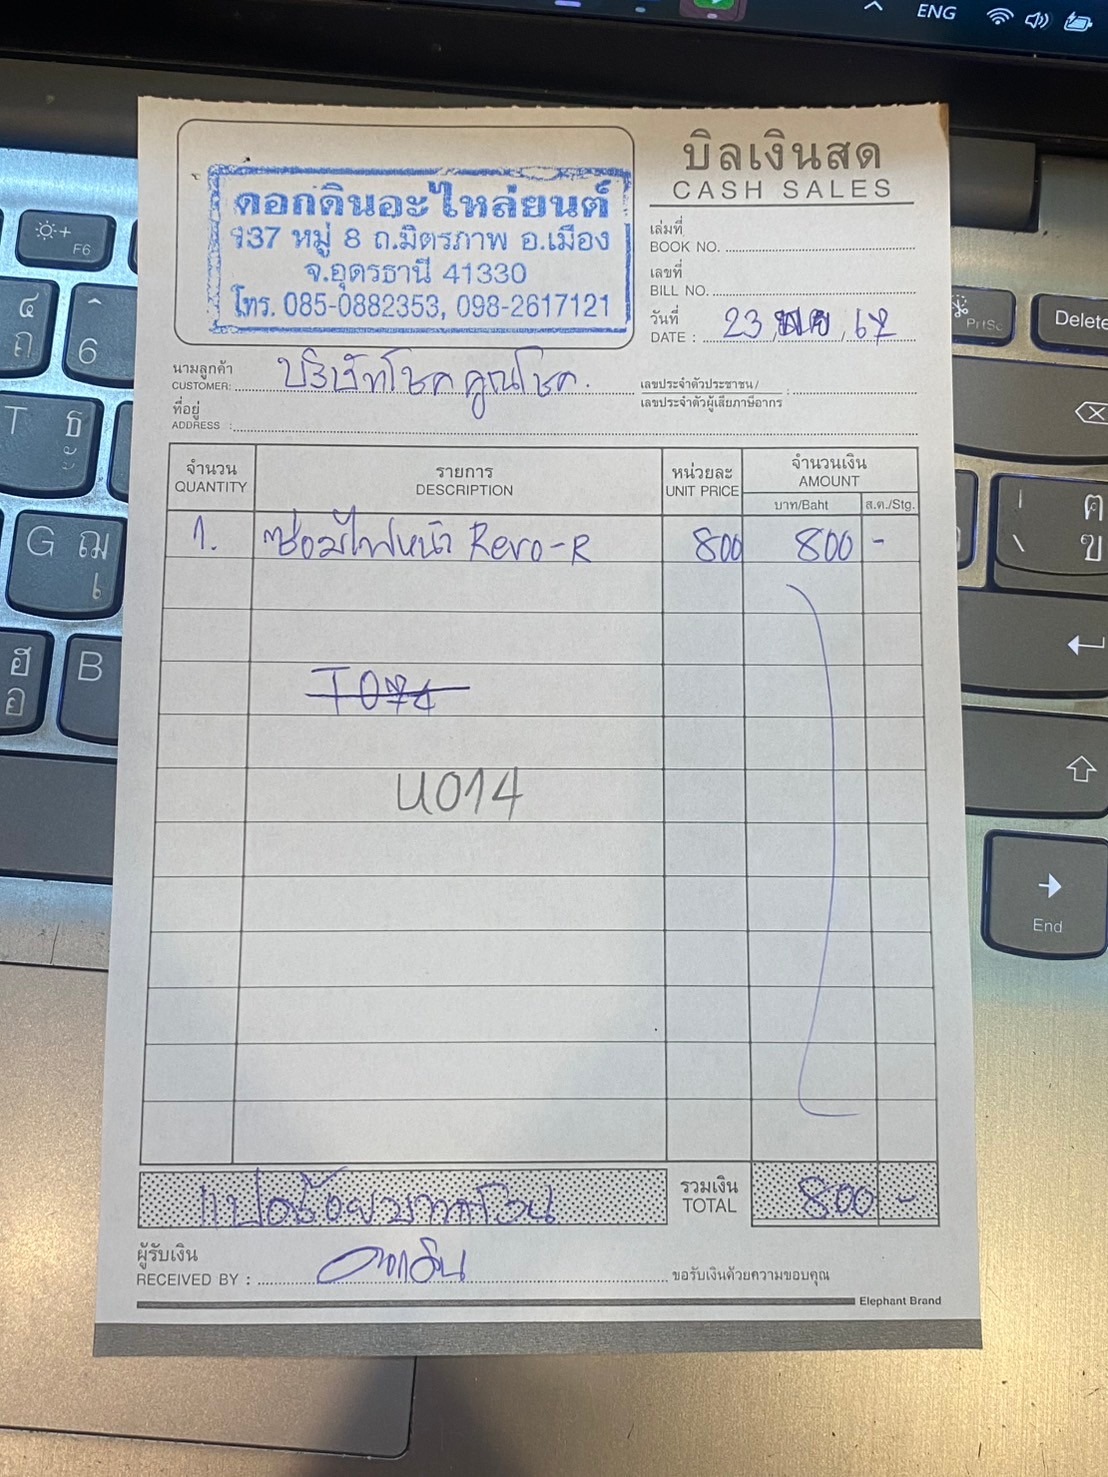 ENG
บิลเงินสด
CASH SALES
ดอกดินอะไหล่ยนต์
137 หมู่ 8 ถ.มิตรภาพ อ.เมือง
จ.อุดรธานี 41330
โทร. 085-0882353, 098-2617121
เล่มที่
BOOK NO.
เลขที่
BILL NO.
วันที่
DATE : 23 67
นามลูกค้า
CUSTOMER: บริษัทโชคคูณโชค.
เลขประจำตัวประชาชน/
เลขประจำตัวผู้เสียภาษีอากร :
ที่อยู่
ADDRESS :
จำนวน รายการ หน่วยละ จำนวนเงิน
QUANTITY DESCRIPTION UNIT PRICE AMOUNT
บาท/Baht ส.ต./Stg.
1. ซ่อมไฟหน้า Revo-R 800 800 -
U014
แปดร้อยบาทถ้วน รวมเงิน 800 -
TOTAL
ผู้รับเงิน
RECEIVED BY : ดอกดิน ขอรับเงินด้วยความขอบคุณ
Elephant Brand
F6
6
T ธ
G ฌ
B
PrtSc
Delete
End